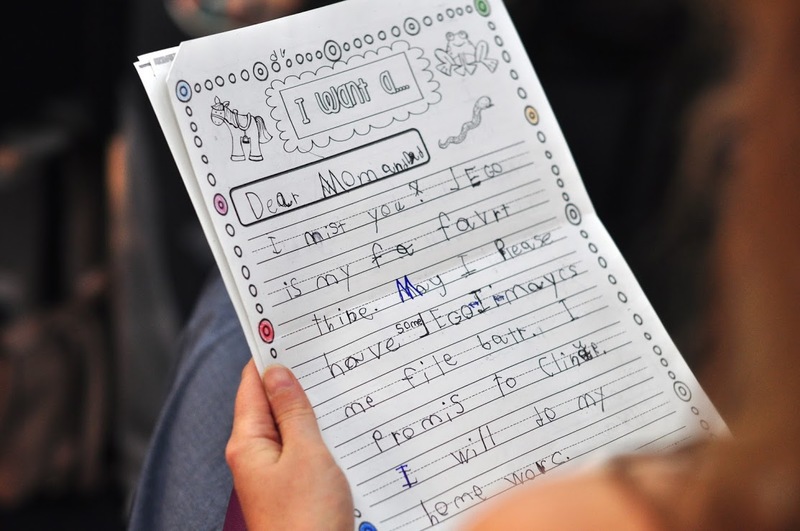 I want a...
Dear Mom and Dad
I mist you! JEGO
is my fa favrt
thine. May I Please
hove some JEGO It mayrs
me file batr. I
Promis to Clinde.
I will do my
home worc.